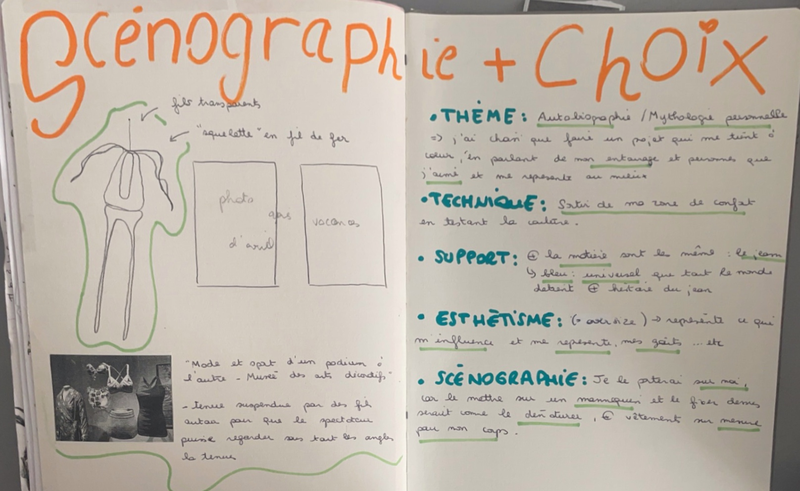 Scénographie + Choix
fils transparents
"squelette" en fil de fer
photo
gas
d'avril
vacances
"Mode et sport d'un podium à
l'autre - Musée des arts décoratifs"
- tenue suspendue par des fils
autour pour que le spectateur
puisse regarder sous tout les angles
la tenue
• THÈME: Autobiographie / Mythologie personnelle
=> j'ai choisi que faire un projet qui me tient à
coeur, en parlant de mon entourage et personnes que
j'aime et me représente au milieu
• TECHNIQUE: Sortir de ma zone de confort
en testant la couture.
• SUPPORT: la matière sont les même : le jean
↳ bleu : universel que tout le monde
détient histoire du jean
• ESTHÉTISME: (oversize) → représente ce qui
m'influence et me représente, mes goûts ... etc
• SCÉNOGRAPHIE: Je le porterai sur moi,
car le mettre sur un mannequin et le fixer dessus
serait come le dénaturer, vêtements sur mesure
pour mon corps.